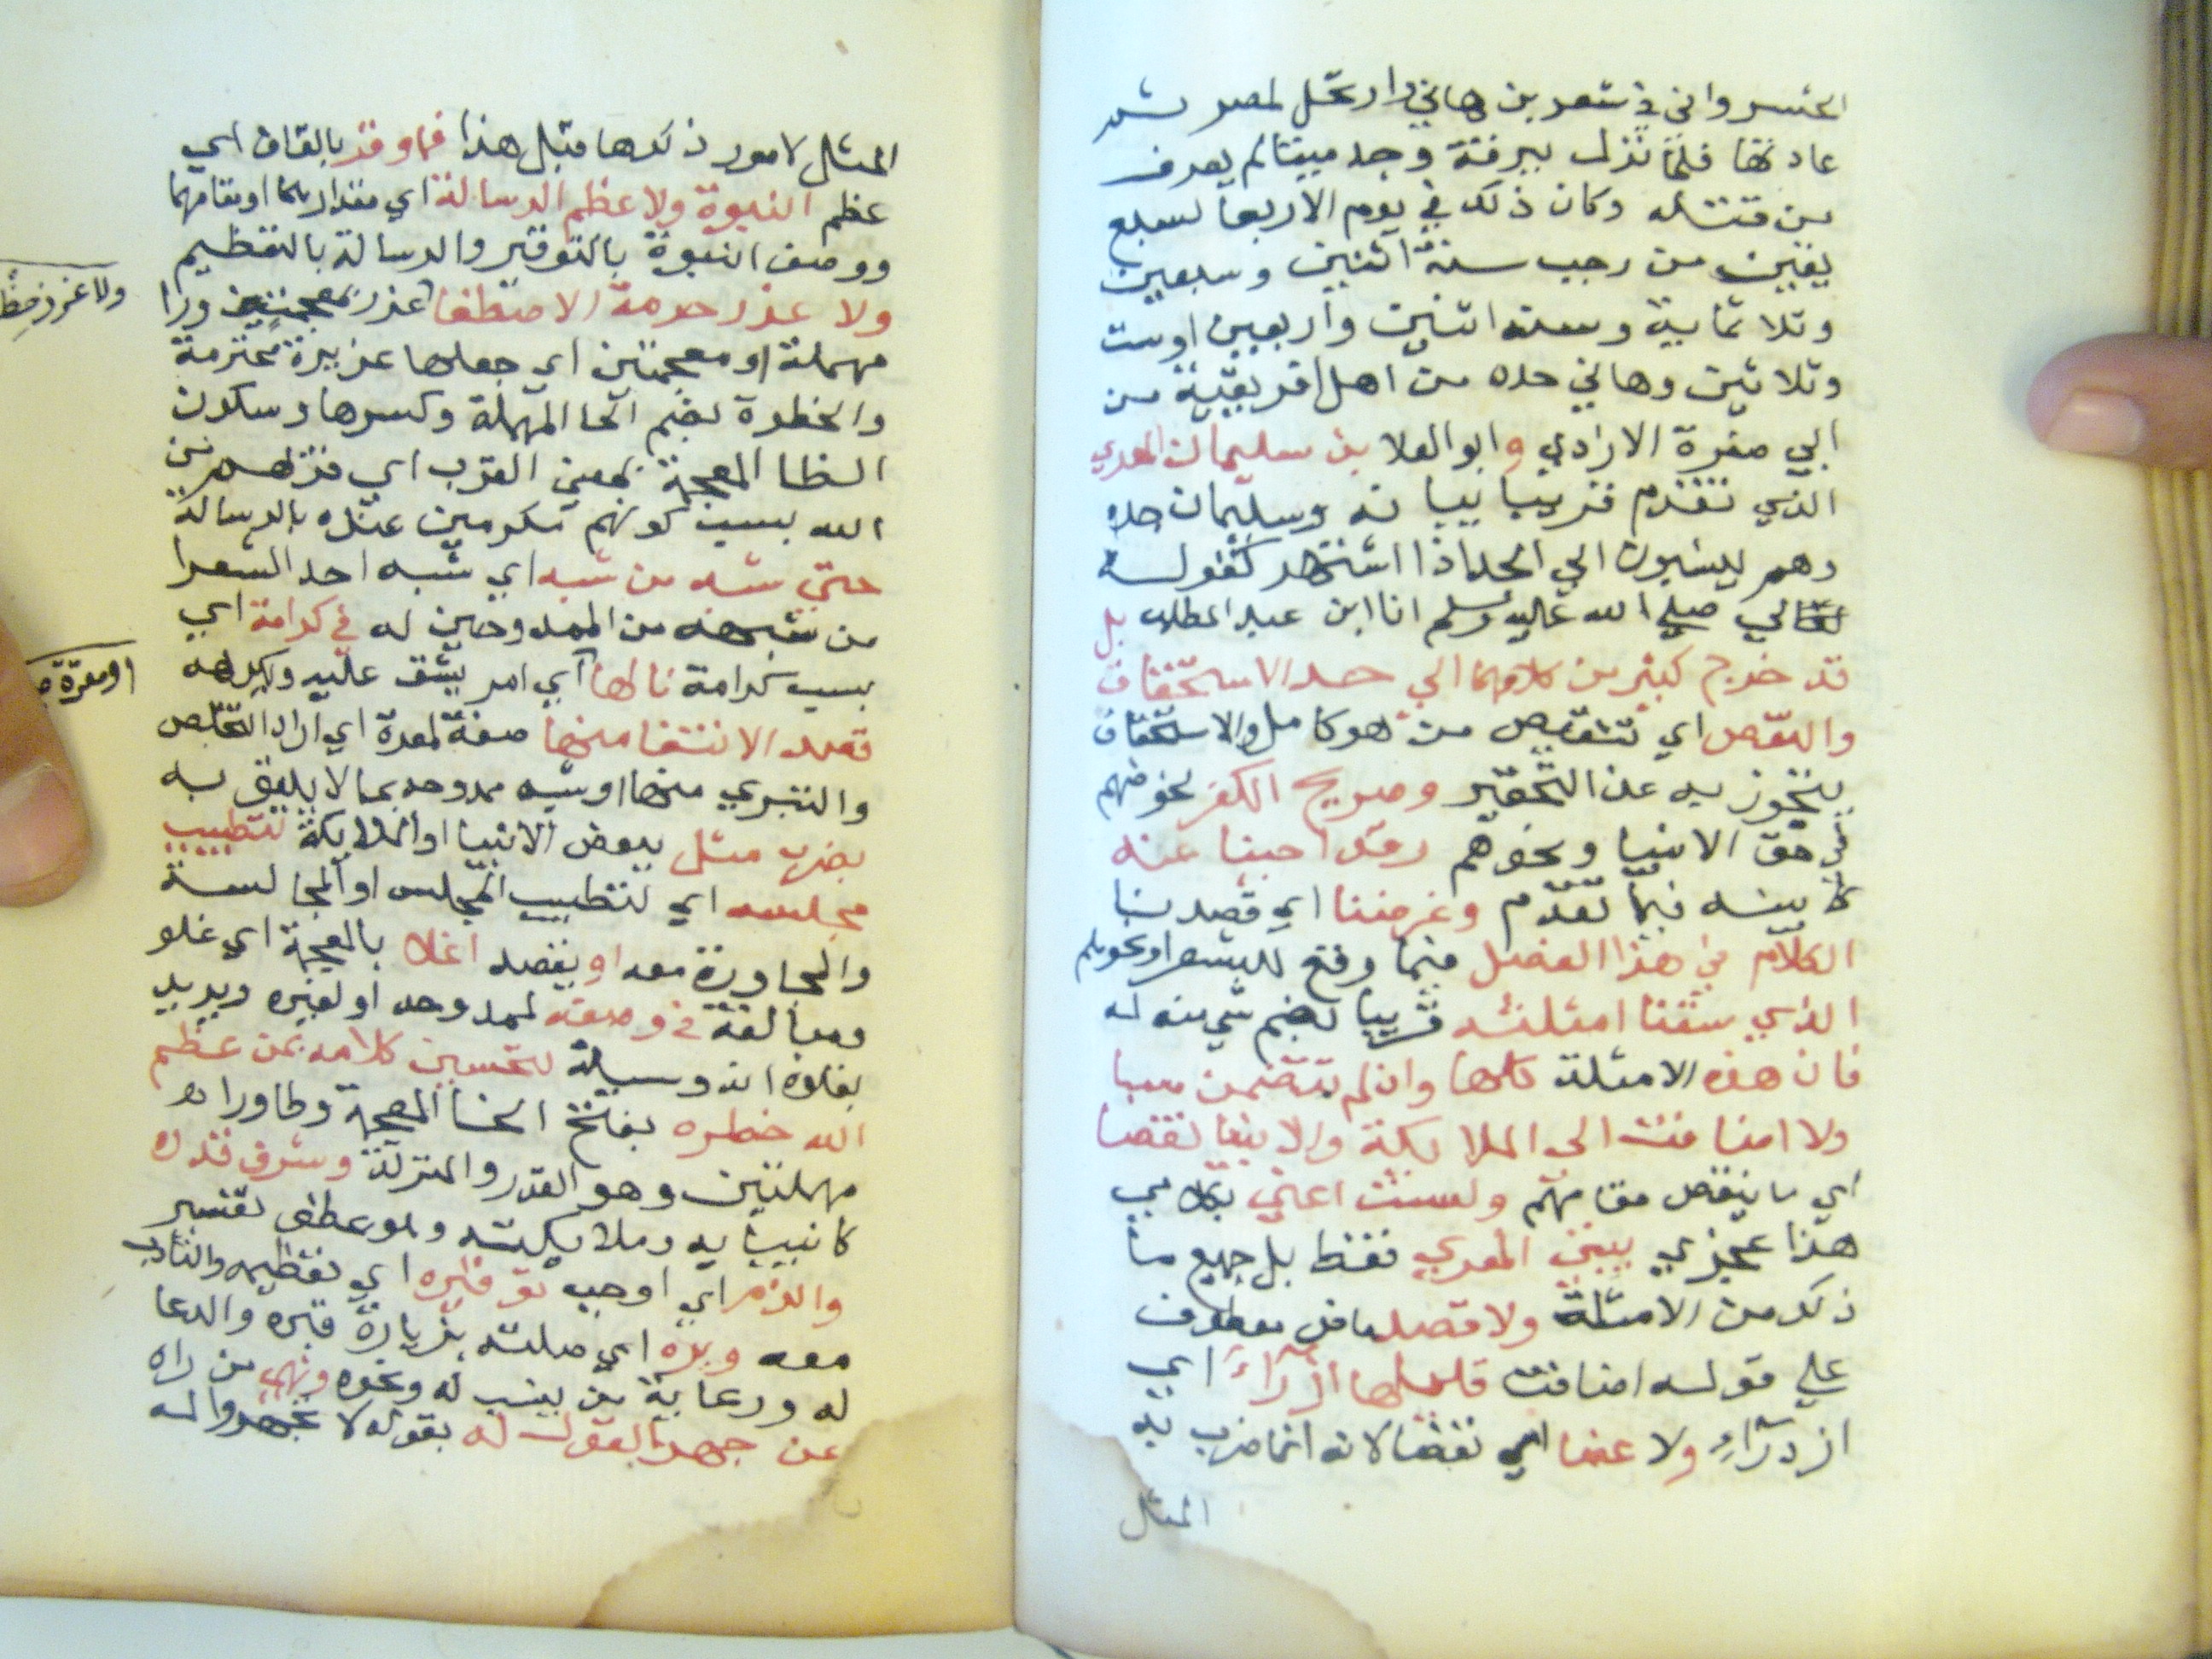 الخسرواني في شعر بن هاني وارتحل لمصر ثم
عاد لها فلما نزل ببرقة وجد ميتا لم يعرف
من قتله وكان ذلك في يوم الاربعا لسبع
بقين من رجب سنة اثنين وسبعين
وثلاثماية وسنه اثنين واربعين اوست
وثلاثين وهاني جده من اهل افريقية من
ابي صفرة الازدي وابو العلا بن سليمان المعري
الذي تقدم قريبا بيانه وسليمان جده
وهم ينسبون الي الجد اذا اشتهر كقوله
تعالي صلي الله عليه وسلم انا ابن عبد المطلب بل
قد خرج كثير من كلامهما الي حد الاستخفاف
والنقص اي تنقيص من هو كامل والاستخفاف
يتجوز به عن التحقير وصريح الكفر لخوضهم
في حق الانبيا ونحوهم وقد اجبنا عنه
كما بينه فيما تقدم وغرضنا اي قصدنا
الكلام في هذا الفصل فيما وقع للشعرا ونحوهم
الذي سقنا امثلته قريبا لضم شي منه له
فان هذه الامثلة كلها وان لم تتضمن سبا
ولا اضافت الي الملايكة والانبيا نقصا
اي ما ينقص مقامهم ولست اعني بكلامي
هذا عجزي بيتي المعري فقط بل جميع ما
ذكر من الامثلة ولا قصد قايل معطوف
علي قوله اضافت قايلها ازرآء اي
ازدرآء ولا غضا اي نقصا لانه انما ضرب به
المثل
المثل لامور ذكرها قبل هذا فما وقر بالقاف اي
عظم النبوة ولا عظم الرسالة اي مقدارهما اومقامهما
ووصف النبوة بالتوقير والرسالة بالتعظيم
ولا عزر حرمة الاصطفا عزر بمعجمتين ورا
مهملة او معجمتين اي جعلها عزيزة محترمة
والحظوة بضم الحا المهملة وكسرها وسكون
الظا المعجمة بمعني القرب اي قربهم من
الله بسبب كونهم مكرمين عنده بالرسالة
حتي شبه من شبه اي شبه احد الشعرا
من شبهه من الممدوحين له في كرامة اي
بسبب كرامة نالها اي امر يشق عليه ويكرهه
قصد الانتفا منها صفة لمعرة اي اراد التخلص
والتبري منها او شبه ممدوحه بما لا يليق به
بضرب مثل ببعض الانبيا او الملايكة لتطييب
مجلسه اي لتطييب المجلس او المجالسة
والمجاورة معه او بقصد اغلا بالمعجمة اي غلو
ومبالغة في وصفه لممدوحه او لغيره ويريد
بغلوه انه وسيلة لتحسين كلامه بمن عظم
الله خطره بفتح الخا المعجمة وطا ورا
مهملتين وهو القدر والمنزلة وشرف قدره
كانبيايه وملايكته وهو عطف تفسير
والزم اي اوجب توقيره اي تعظيمه والتادب
معه وبره اي صلته بزيارة قبره والدعا
له ورعاية من ينسب له ونحوه ونهي من راه
عن جهر القول له بقوله لا تجهروا له
ولا عزز حظوة
او معرة